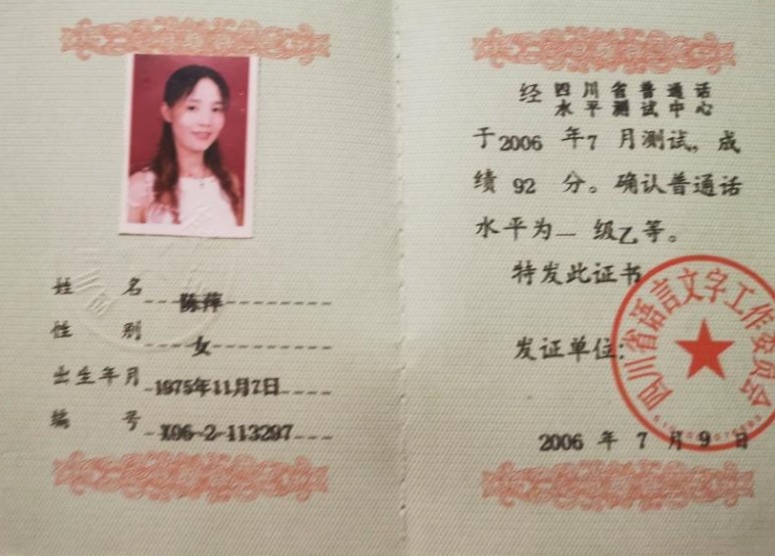 姓 名 陈萍
性 别 女
出生年月 1975年11月7日
编 号 X06-2-113297
经 四川省普通话
水平测试中心
于2006 年7 月测试，成
绩 92 分。确认普通话
水平为一 级乙等。
特发此证书
发证单位：
四川省语言文字工作委员会
2006 年 7 月 9 日